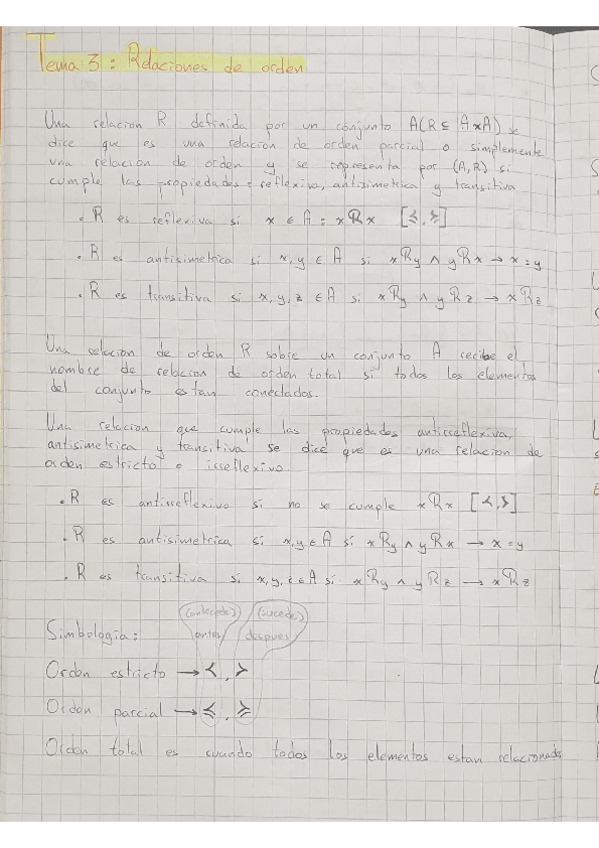 Tema 3: Relaciones de orden
Una relacion R definida por un conjunto A(R ⊆ A×A) se
dice que es una relacion de orden parcial o simplemente
una relacion de orden y se representa por (A,R) si
cumple las propiedades: reflexiva, antisimetrica y transitiva
• R es reflexiva si x ∈ A = xRx [≼, ≽]
• R es antisimetrica si x,y ∈ A si xRy ∧ yRx → x=y
• R es transitiva si x,y,z ∈ A si xRy ∧ yRz → xRz
Una relacion de orden R sobre un conjunto A recibe el
nombre de relacion de orden total si todos los elementos
del conjunto estan conectados.
Una relacion que cumple las propiedades antirreflexiva,
antisimetrica y transitiva se dice que es una relacion de
orden estricto o irreflexivo.
• R es antirreflexiva si no se cumple xRx [≺, ≻]
• R es antisimetrica si x,y ∈ A si xRy ∧ yRx → x=y
• R es transitiva si x,y,z ∈ A si xRy ∧ yRz → xRz
(antecede) (sucede)
Simbologia: antes / despues
Orden estricto → ≺, ≻
Orden parcial → ≼, ≽
Orden total es cuando todos los elementos estan relacionados